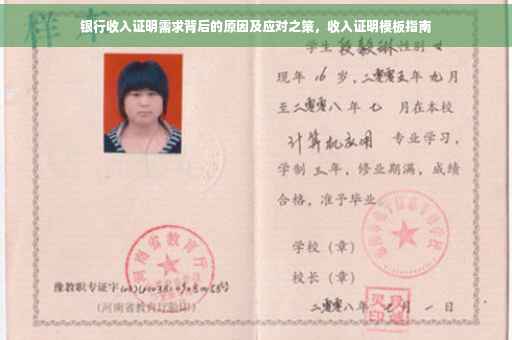 银行收入证明需求背后的原因及应对之策，收入证明模板指南
样本
学生 性别 女
现年 16 岁，二零零五年 九月
至二零零八年 七 月在本校
计算机应用 专业学习，
学制 三 年，修业期满，成绩
合格，准予毕业。
学校（章）
校长（章）
二零零八年 月 一 日
河南省教育厅
豫教职专证字
（河南省教育厅验印）